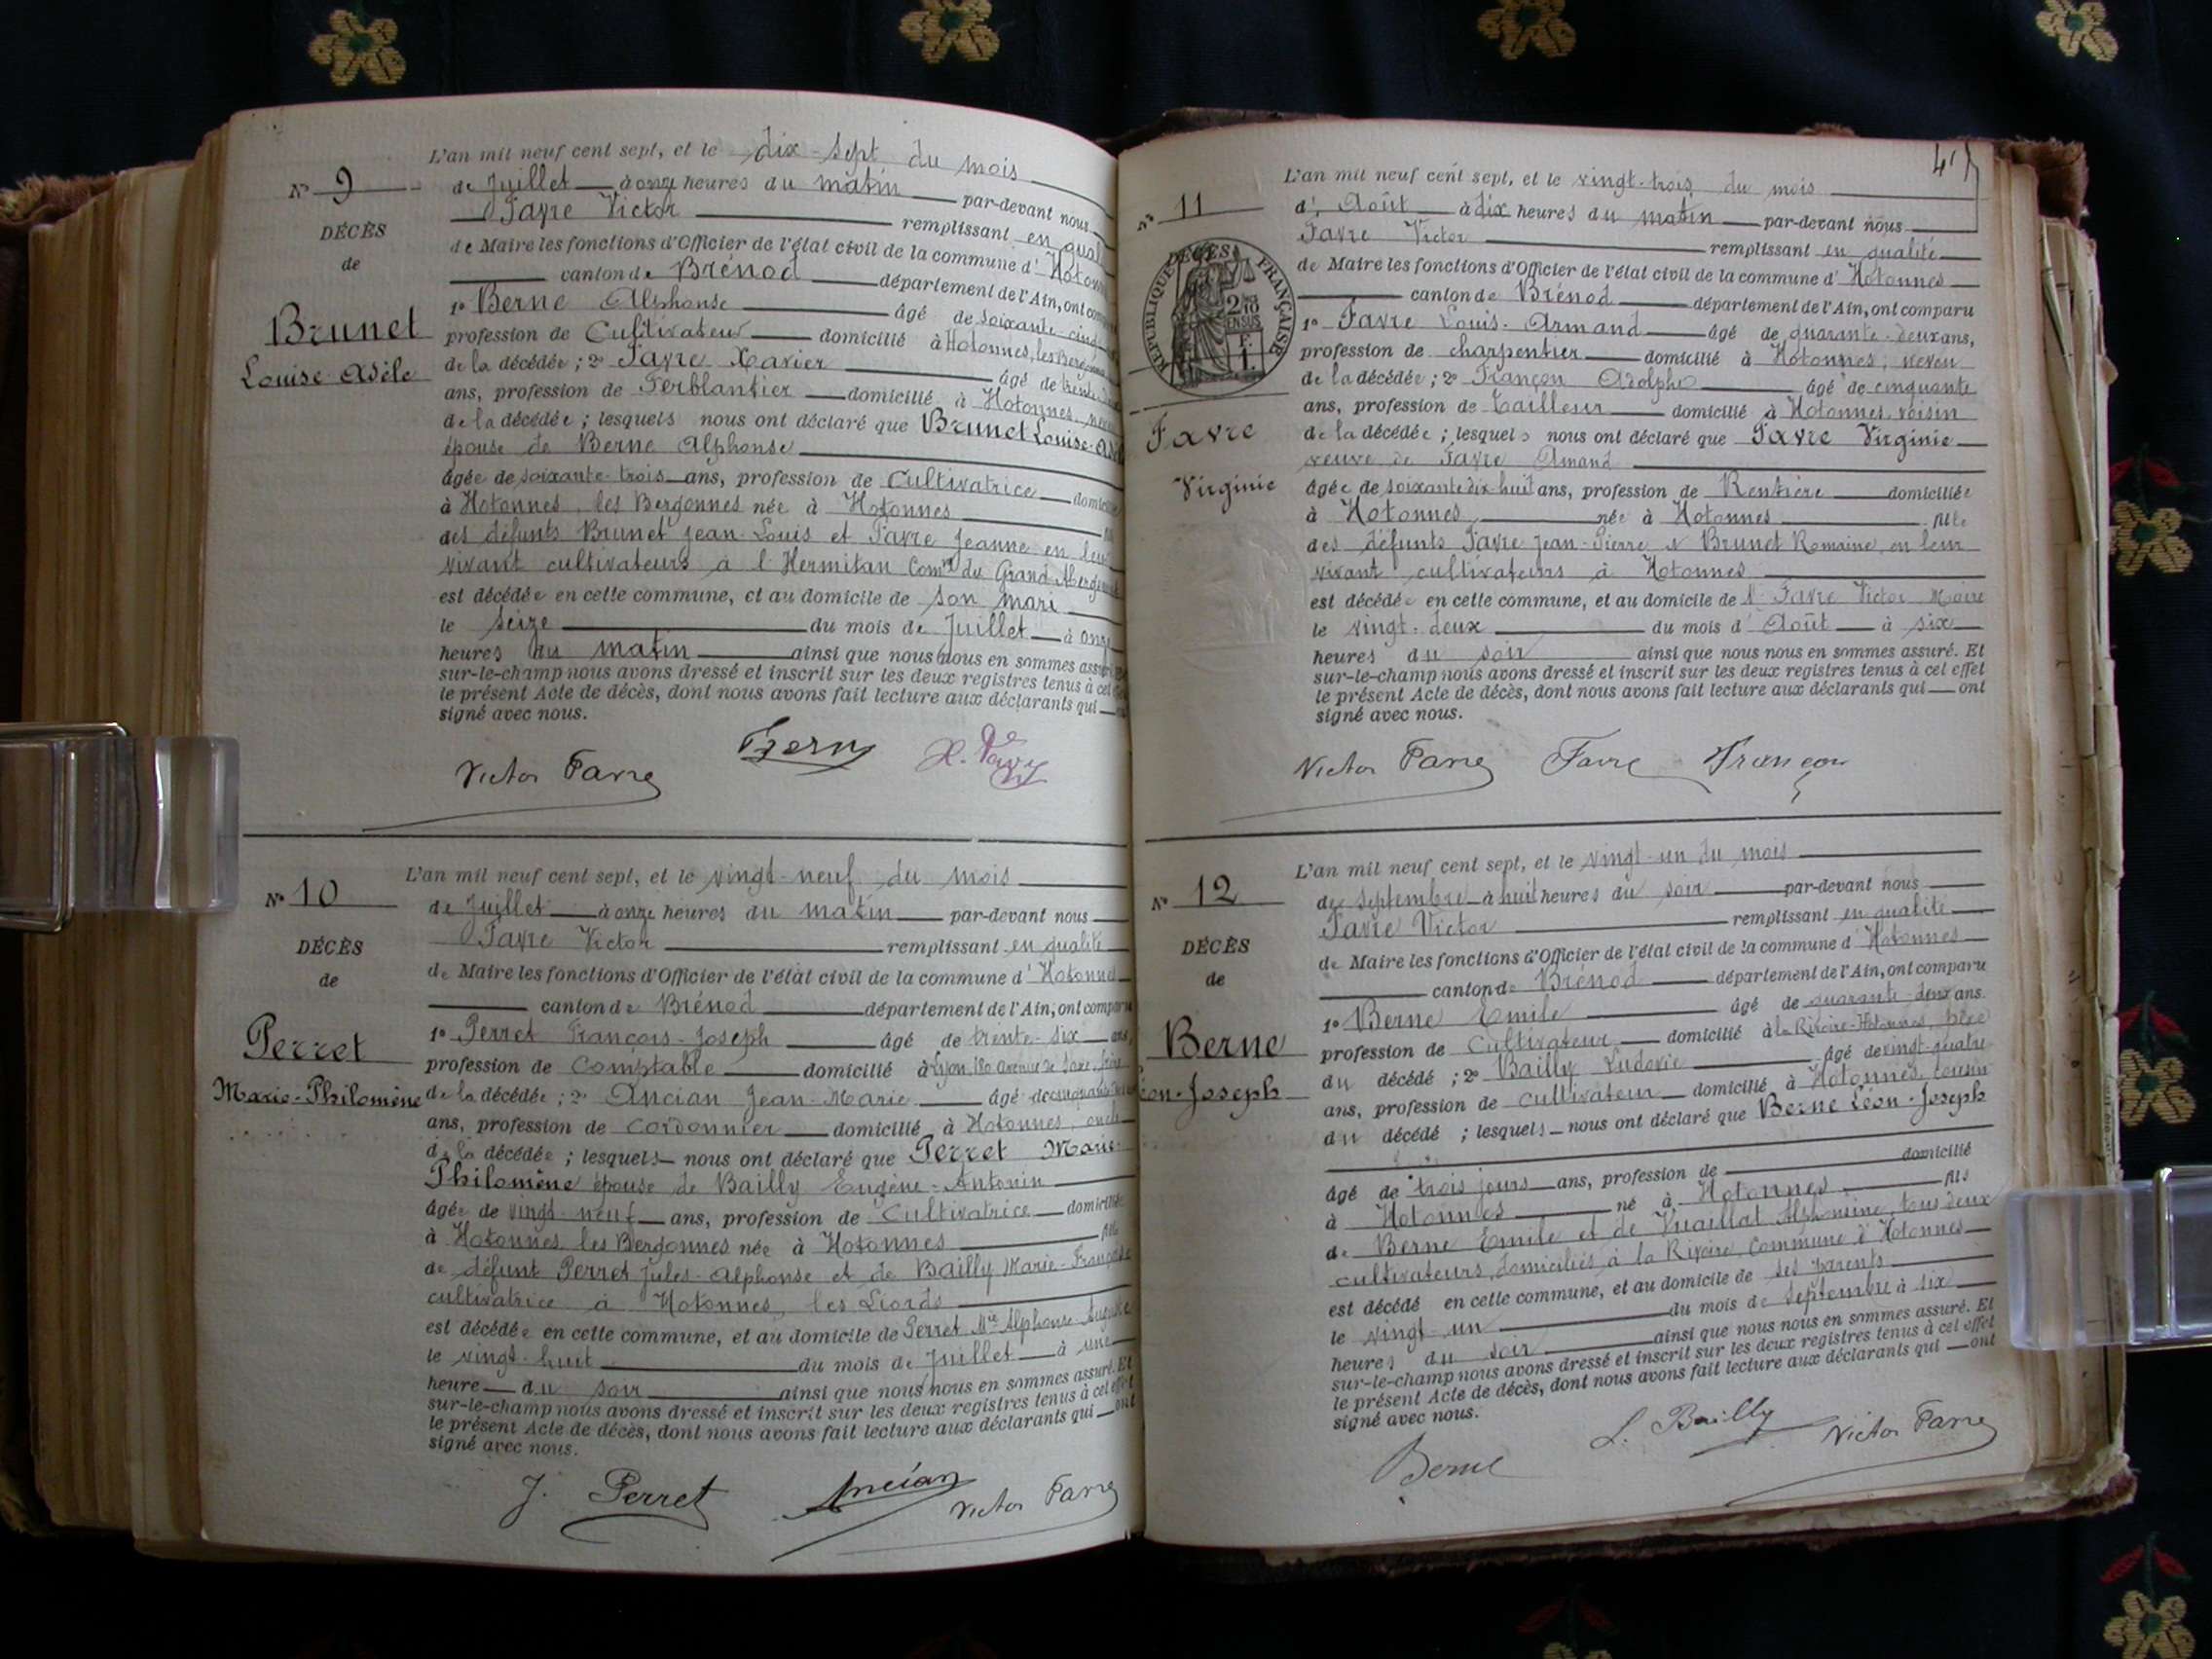 L'an mil neuf cent sept, et le dix-sept du mois
N° 9
de Juillet à onze heures du matin par-devant nous
Favre Victor remplissant en
DÉCÈS
de
de Maire les fonctions d'Officier de l'état civil de la commune d'
canton de Brénod département de l'Ain, ont
1° Berne Alphonse âgé de soixante-cinq
Brunet
Louise-Adèle
profession de Cultivateur domicilié à Hotonnes, les
de la décédée ; 2° Favre Xavier âgé de
ans, profession de Ferblantier domicilié à Hotonnes,
de la décédée ; lesquels nous ont déclaré que Brunet Louise-
épouse de Berne Alphonse
âgée de soixante-trois ans, profession de Cultivatrice
à Hotonnes, les Bergonnes née à Hotonnes
des défunts Brunet Jean-Louis et Favre Jeanne en leur
vivant cultivateurs à l'Hermitan Comne du Grand
est décédée en cette commune, et au domicile de son mari
le seize du mois de Juillet à onze
heures du matin ainsi que nous nous en sommes
sur-le-champ nous avons dressé et inscrit sur les deux registres tenus à cet
le présent Acte de décès, dont nous avons fait lecture aux déclarants qui
signé avec nous.
Victor Favre Berne
L'an mil neuf cent sept, et le vingt-neuf du mois
N° 10
de Juillet à onze heures du matin par-devant nous
Favre Victor remplissant en qualité
DÉCÈS
de
de Maire les fonctions d'Officier de l'état civil de la commune d'Hotonnes
canton de Brénod département de l'Ain, ont comparu
1° Perret François-Joseph âgé de trente-six ans,
Perret
Marie-Philomène
profession de Comptable domicilié à Lyon, avenue de Saxe, frère
de la décédée ; 2° Ancian Jean-Marie âgé de
ans, profession de Cordonnier domicilié à Hotonnes, oncle
de la décédée ; lesquels nous ont déclaré que Perret Marie-
Philomène épouse de Bailly Eugène-Antonin
âgée de vingt-neuf ans, profession de Cultivatrice domiciliée
à Hotonnes les Bergonnes née à Hotonnes fille
de défunt Perret Jules-Alphonse et de Bailly Marie-Françoise
cultivatrice à Hotonnes, les Liords
est décédée en cette commune, et au domicile de Perret Mie Alphonse-Auguste
le vingt-huit du mois de Juillet à une
heure du soir ainsi que nous nous en sommes assuré. Et
sur-le-champ nous avons dressé et inscrit sur les deux registres tenus à cet effet
le présent Acte de décès, dont nous avons fait lecture aux déclarants qui ont
signé avec nous.
J. Perret Ancian Victor Favre
L'an mil neuf cent sept, et le vingt-trois du mois
N° 11
d'Août à dix heures du matin par-devant nous
Favre Victor remplissant en qualité
de Maire les fonctions d'Officier de l'état civil de la commune d'Hotonnes
canton de Brénod département de l'Ain, ont comparu
DÉCÈS
RÉPUBLIQUE FRANÇAISE
1° Favre Louis-Armand âgé de quarante-deux ans,
profession de charpentier domicilié à Hotonnes, neveu
de la décédée ; 2° Françon Adolphe âgé de cinquante
ans, profession de Tailleur domicilié à Hotonnes, voisin
Favre
Virginie
de la décédée ; lesquels nous ont déclaré que Favre Virginie
veuve de Favre Amand
âgée de soixante dix-huit ans, profession de Rentière domiciliée
à Hotonnes née à Hotonnes fille
des défunts Favre Jean-Pierre et Brunet Romaine, en leur
vivant cultivateurs à Hotonnes
est décédée en cette commune, et au domicile de Mr Favre Victor Maire
le vingt-deux du mois d'Août à six
heures du soir ainsi que nous nous en sommes assuré. Et
sur-le-champ nous avons dressé et inscrit sur les deux registres tenus à cet effet
le présent Acte de décès, dont nous avons fait lecture aux déclarants qui ont
signé avec nous.
Victor Favre Favre Françon
L'an mil neuf cent sept, et le vingt-un du mois
N° 12
de Septembre à huit heures du soir par-devant nous
Favre Victor remplissant en qualité
DÉCÈS
de
de Maire les fonctions d'Officier de l'état civil de la commune d'Hotonnes
canton de Brénod département de l'Ain, ont comparu
1° Berne Emile âgé de quarante-deux ans.
Berne
Léon-Joseph
profession de Cultivateur domicilié à la Rivoire-Hotonnes, père
du décédé ; 2° Bailly Ludovic âgé de vingt-quatre
ans, profession de cultivateur domicilié à Hotonnes, cousin
du décédé ; lesquels nous ont déclaré que Berne Léon-Joseph
âgé de trois jours ans, profession de domicilié
à Hotonnes né à Hotonnes fils
de Berne Emile et de Vuaillat Alphonsine, tous deux
cultivateurs, domiciliés à la Rivoire, Commune d'Hotonnes
est décédé en cette commune, et au domicile de ses parents
le vingt-un du mois de Septembre à six
heures du soir ainsi que nous nous en sommes assuré. Et
sur-le-champ nous avons dressé et inscrit sur les deux registres tenus à cet effet
le présent Acte de décès, dont nous avons fait lecture aux déclarants qui ont
signé avec nous.
Berne L. Bailly Victor Favre